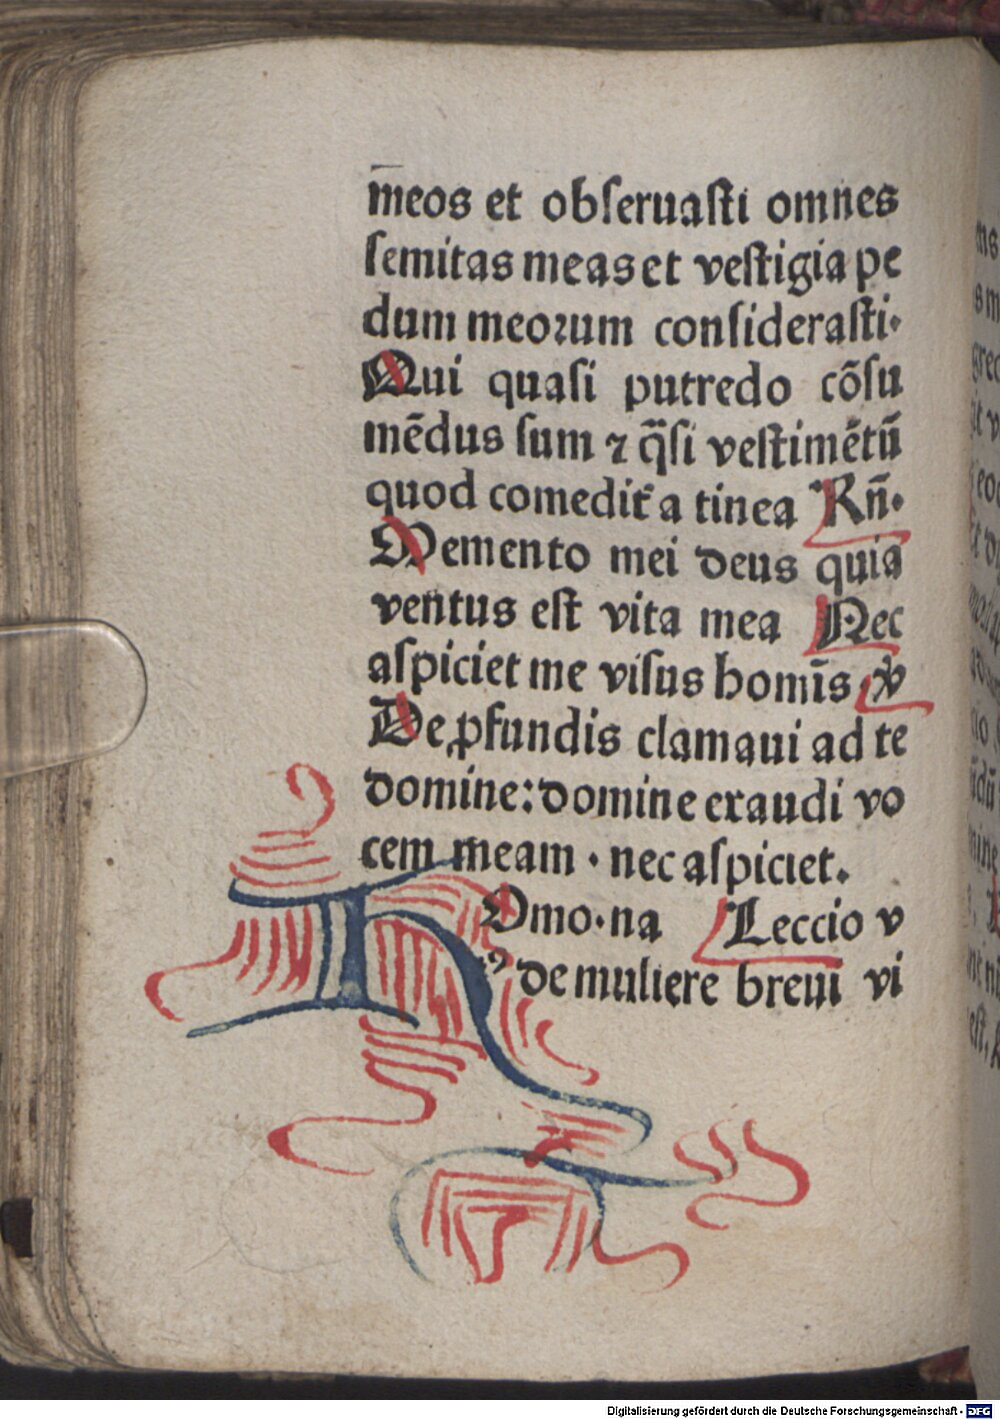 m̄eos et obſeruaſti omnes
ſemitas meas et veſtigia pe
dum meoꝛum conſideraſti·
Qui quaſi putredo cõſu
mēdus ſum ⁊ q̄ſi veſtimētū
quod comedit᷑ a tinea Rñ·
Memento mei deus quia
ventus eſt vita mea Nec
aſpiciet me viſus homīs ℣
De ꝓfundis clamaui ad te
domine: domine exaudi vo
cem meam · nec aſpiciet.
Omo·na Leccio v
de muliere breui vi
Digitalisierung gefördert durch die Deutsche Forschungsgemeinschaft - DFG